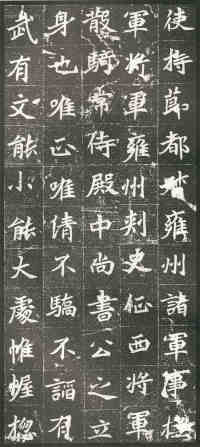 使持節都督雍州諸軍事撫
軍將軍雍州刺史征西將軍
散騎常侍殿中尚書公之立
身也唯正唯清不驕不諂有
武有文能小能大處帷幄揔